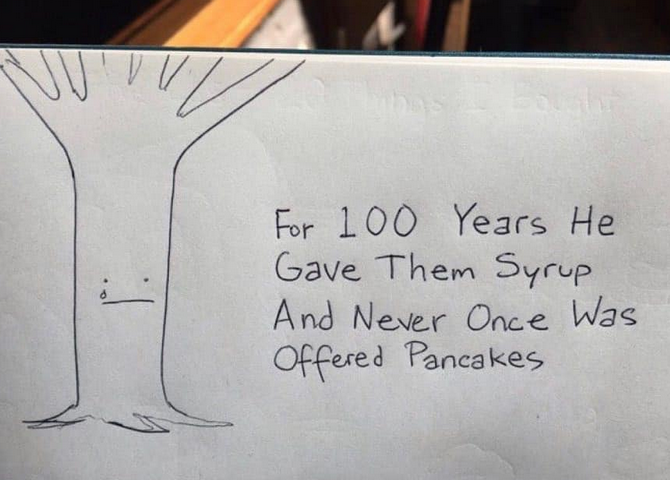 For 100 Years He
Gave Them Syrup
And Never Once Was
Offered Pancakes